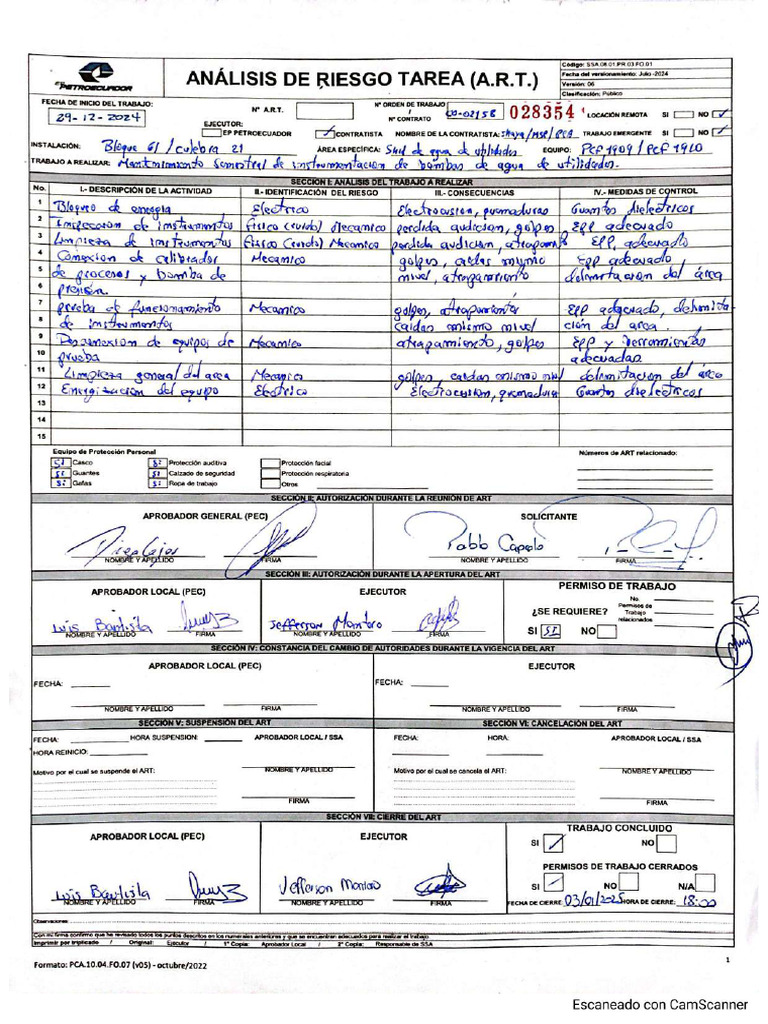 EP PETROECUADOR
ANÁLISIS DE RIESGO TAREA (A.R.T.)
Código: SSA.08.01.PR.03.FO.01
Fecha del versionamiento: Julio -2024
Versión: 06
Clasificación: Público
FECHA DE INICIO DEL TRABAJO:
29-12-2024
N° A.R.T.
N° ORDEN DE TRABAJO /
N° CONTRATO
00-02158
028354
LOCACIÓN REMOTA SI NO ✓
EJECUTOR:
EP PETROECUADOR ✓ CONTRATISTA NOMBRE DE LA CONTRATISTA: Shaya/MSP/PCA TRABAJO EMERGENTE SI NO ✓
INSTALACIÓN: Bloque 61 / Culebra 21 ÁREA ESPECÍFICA: Skid de agua de utilidades EQUIPO: PCP 1909 / PCP 1910
TRABAJO A REALIZAR: Mantenimiento semestral de instrumentacion de bombas de agua de utilidades.
SECCION I: ANALISIS DEL TRABAJO A REALIZAR
No. I.- DESCRIPCIÓN DE LA ACTIVIDAD II.- IDENTIFICACIÓN DEL RIESGO III.- CONSECUENCIAS IV.- MEDIDAS DE CONTROL
1 Bloqueo de energia Electrico Electrocusion, quemaduras Guantes dielectricos
2 Inspeccion de instrumentos fisico (ruido) Mecanico perdida audicion, golpes EPP adecuado
3 Limpieza de instrumentos fisico (ruido) Mecanico perdida audicion, atrapamiento EPP, adecuado
4 Conexion de calibrador Mecanico golpes, caidas mismo EPP adecuado
5 de procesos y bomba de nivel, atrapamiento delimitacion del área
6 presion.
7 prueba de funcionamiento Mecanico golpes, atrapamiento EPP adecuado, delimita
8 de instrumentos caidas mismo nivel ción del area.
9 Desconexion de equipos de Mecanico atrapamiento, golpes EPP y herramientas
10 prueba adecuadas
11 Limpieza general del area Mecanico golpes caidas mismo nivel delimitacion del área
12 Energizacion del equipo Electrico Electrocusion, quemaduras Guantes dielectricos
13
14
15
Equipo de Protección Personal
Números de ART relacionado:
SI Casco SI Protección auditiva Protección facial
SI Guantes SI Calzado de seguridad Protección respiratoria
SI Gafas SI Ropa de trabajo Otros
SECCIÓN II: AUTORIZACIÓN DURANTE LA REUNIÓN DE ART
APROBADOR GENERAL (PEC) SOLICITANTE
Pablo
NOMBRE Y APELLIDO FIRMA NOMBRE Y APELLIDO FIRMA
SECCIÓN III: AUTORIZACIÓN DURANTE LA APERTURA DEL ART
APROBADOR LOCAL (PEC) EJECUTOR PERMISO DE TRABAJO
Luis Bautista Jefferson Montero
NOMBRE Y APELLIDO FIRMA NOMBRE Y APELLIDO FIRMA
¿SE REQUIERE?
SI SI NO
No. Permisos de Trabajo relacionados
SECCIÓN IV: CONSTANCIA DEL CAMBIO DE AUTORIDADES DURANTE LA VIGENCIA DEL ART
APROBADOR LOCAL (PEC) EJECUTOR
FECHA: FECHA:
NOMBRE Y APELLIDO FIRMA NOMBRE Y APELLIDO FIRMA
SECCIÓN V: SUSPENSIÓN DEL ART SECCIÓN VI: CANCELACIÓN DEL ART
FECHA: HORA SUSPENSION: APROBADOR LOCAL / SSA FECHA: HORA: APROBADOR LOCAL / SSA
HORA REINICIO:
NOMBRE Y APELLIDO NOMBRE Y APELLIDO
Motivo por el cual se suspende el ART: Motivo por el cual se cancela el ART:
FIRMA FIRMA
SECCIÓN VII: CIERRE DEL ART
APROBADOR LOCAL (PEC) EJECUTOR TRABAJO CONCLUIDO
SI ✓ NO
PERMISOS DE TRABAJO CERRADOS
SI ✓ NO N/A
Luis Bautista Jefferson Montero
NOMBRE Y APELLIDO FIRMA NOMBRE Y APELLIDO FIRMA
FECHA DE CIERRE: 03/01/2025 HORA DE CIERRE: 18:00
Observaciones
Con mi firma confirmo que he revisado todos los puntos descritos en los numerales anteriores y que se encuentran adecuados para realizar el trabajo
Imprimir por triplicado / Original: Ejecutor / 1° Copia: Aprobador Local / 2° Copia: Responsable de SSA
Formato: PCA.10.04.FO.07 (v05) - octubre/2022
1
Escaneado con CamScanner